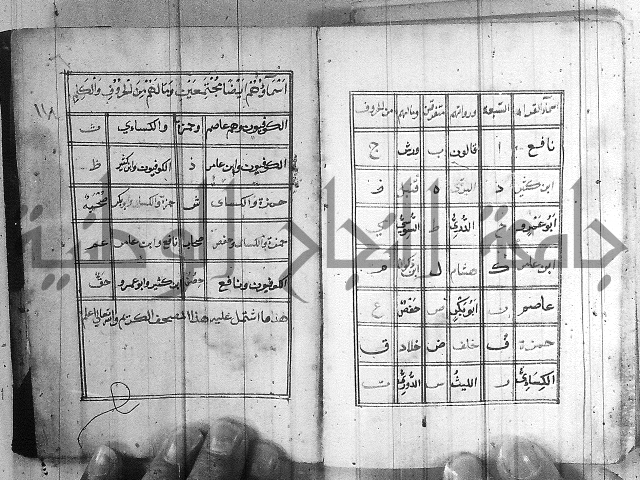 اسماء القراء السبعة ورواتهم متفرقين ومالهم من الحروف
نافع ا قالون ب ورش ج
ابن كثير د البزي ه قنبل ز
ابو عمرو ح الدوري ط السوسي ي
ابن عامر ك هشام ل ابن ذكوان م
عاصم ن ابوبكر ص حفص ع
حمزة ف خلف ض خلاد ق
الكسائي ر الليث س الدوري ت
اسماؤهم ايضا مجتمعين ومالهم من الحروف والكنى
الكوفيون وهم عاصم وحمزة والكسائي ث
الكوفيون وابن عامر ذ الكوفيون وابن كثير ظ
حمزة والكسائي ش حمزة والكسائي وابوبكر صحبة
حمزة والكسائي وحفص صحاب نافع وابن عامر عم
الكوفيون ونافع حصن ابن كثير وابو عمرو حق
هذا ما اشتمل عليه هذا المصحف الكريم والله تعالى اعلم
١١٨
جامعة النجاح الوطنية